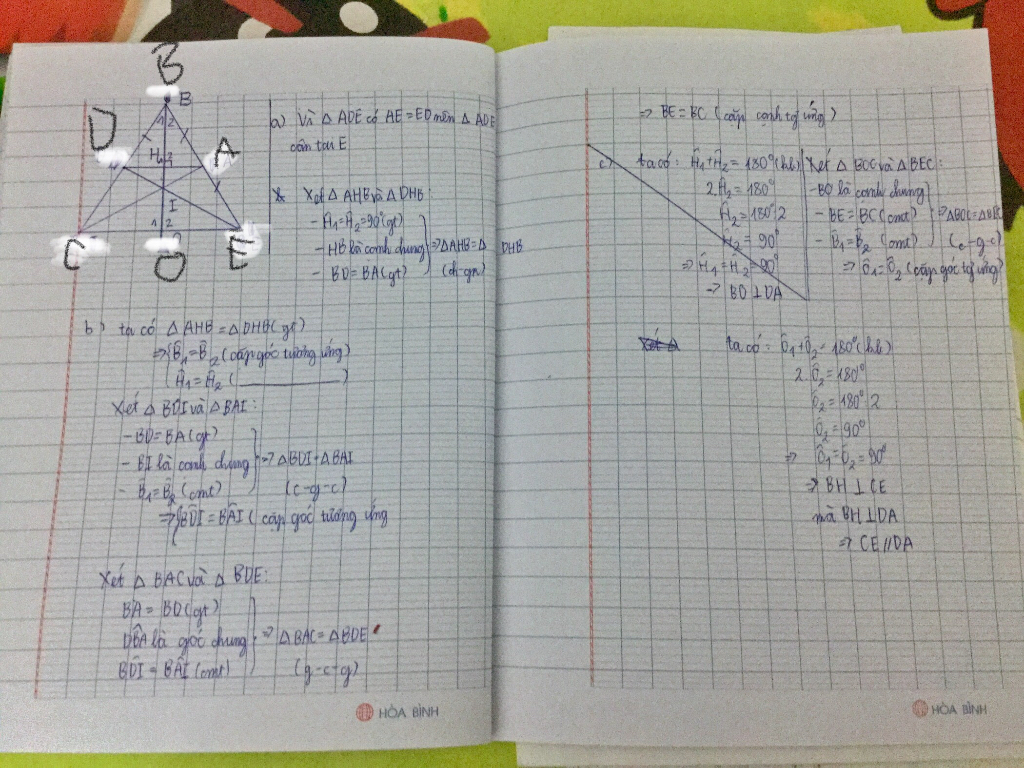 B
B
1 2
D
H 1 2
A
I
1 2
C
O
E
a) Vì △ ADE có AE = ED nên △ ADE
cân tại E
Xét △ AHB và △ DHB:
- Ĥ1 = Ĥ2 = 90° (gt)
- HB là cạnh chung
- BD = BA (gt)
⇒ △AHB = △ DHB
(ch-gn)
b) ta có △ AHB = △ DHB (gt)
⇒ { B̂1 = B̂2 (cặp góc tương ứng)
Ĥ1 = Ĥ2 ( ——— )
Xét △ BDI và △ BAI:
- BD = BA (gt)
- BI là cạnh chung
- B̂1 = B̂2 (cmt)
⇒ △BDI = △BAI
(c-g-c)
⇒ { BD̂I = BÂI ( cặp góc tương ứng
Xét △ BAC và △ BDE:
BA = BD (gt)
DB̂A là góc chung
BD̂I = BÂI (cmt)
⇒ △BAC = △BDE
(g-c-g)
⇒ BE = BC (cặp cạnh tg ứng)
c) ta có: Ĥ1 + Ĥ2 = 180° (kb)
2.Ĥ2 = 180°
Ĥ2 = 180°:2
Ĥ2 = 90°
⇒ Ĥ1 = Ĥ2 = 90°
⇒ BO ⊥ DA
Xét △ BOC và △ BEC:
- BO là cạnh chung
- BE = BC (cmt)
- B̂1 = B̂2 (cmt)
(c-g-c)
⇒ Ô1 = Ô2 (cặp góc tg ứng)
Xét △
ta có: Ô1 + Ô2 = 180° (kb)
2.Ô2 = 180°
Ô2 = 180°:2
Ô2 = 90°
⇒ Ô1 = Ô2 = 90°
⇒ BH ⊥ CE
mà BH ⊥ DA
⇒ CE // DA
HÒA BÌNH
HÒA BÌNH